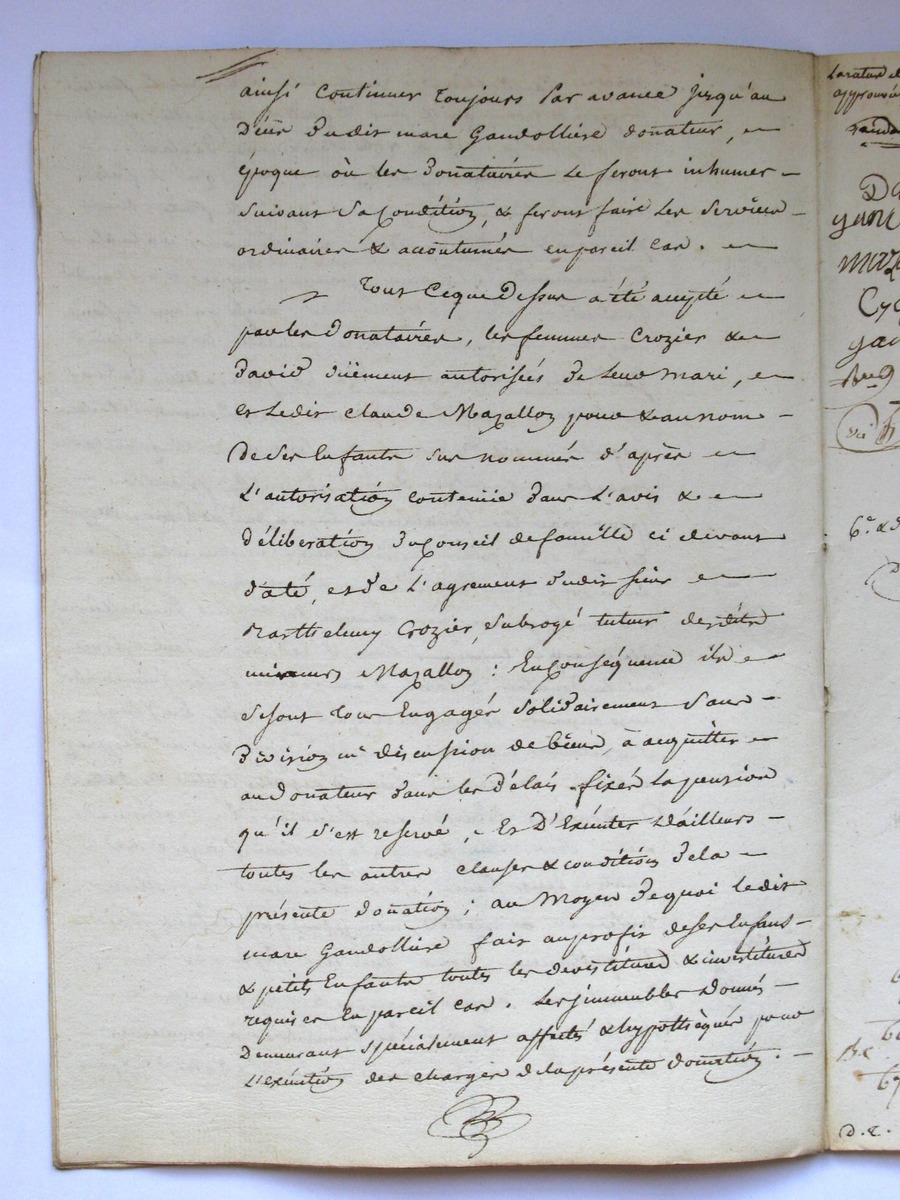 ainsi Continuer Toujours Par avance jusqu'au
Décès Dudit marc Gaudolliere donateur,
époque où les Donataires Le feront inhumer
suivant sa Condition, & feront faire Les services
ordinaires & accoutumés en pareil Cas.
Tout Ce que Dessus a été accepté
par les Donataires, les femmes Crozier &
David düement autorisées De Leur Mari,
et Ledit Claude Mazalloy pour & au nom
De Ses Enfants sus nommés d'après
L'autorisation contenüe dans L'avis &
délibération Du Conseil de famille ci devant
Daté, et De L'agrement Dudit Sieur
Barthelemy Crozier, Subrogé tuteur desdits
mineurs Mazalloy : En Conséquence ils
Se sont Tous Engagés Solidairement Sans
Division ni discussion de biens, à acquitter
au Donateur Dans les Délais fixés La pension
qu'il s'est reservé, Et D'Exécuter D'ailleurs
toutes les autres clauses & conditions De la
présente donation ; au Moyen De quoi ledit
marc Gaudolliere fait au profit de ses Enfans
& petits Enfants toutes les devestitures & investitures
requises En pareil cas. Les jmmeubles Donnés
Demeurant spécialement affectés & hypothèqués pour
L'exécution des charges de la présente donation.
D.E.